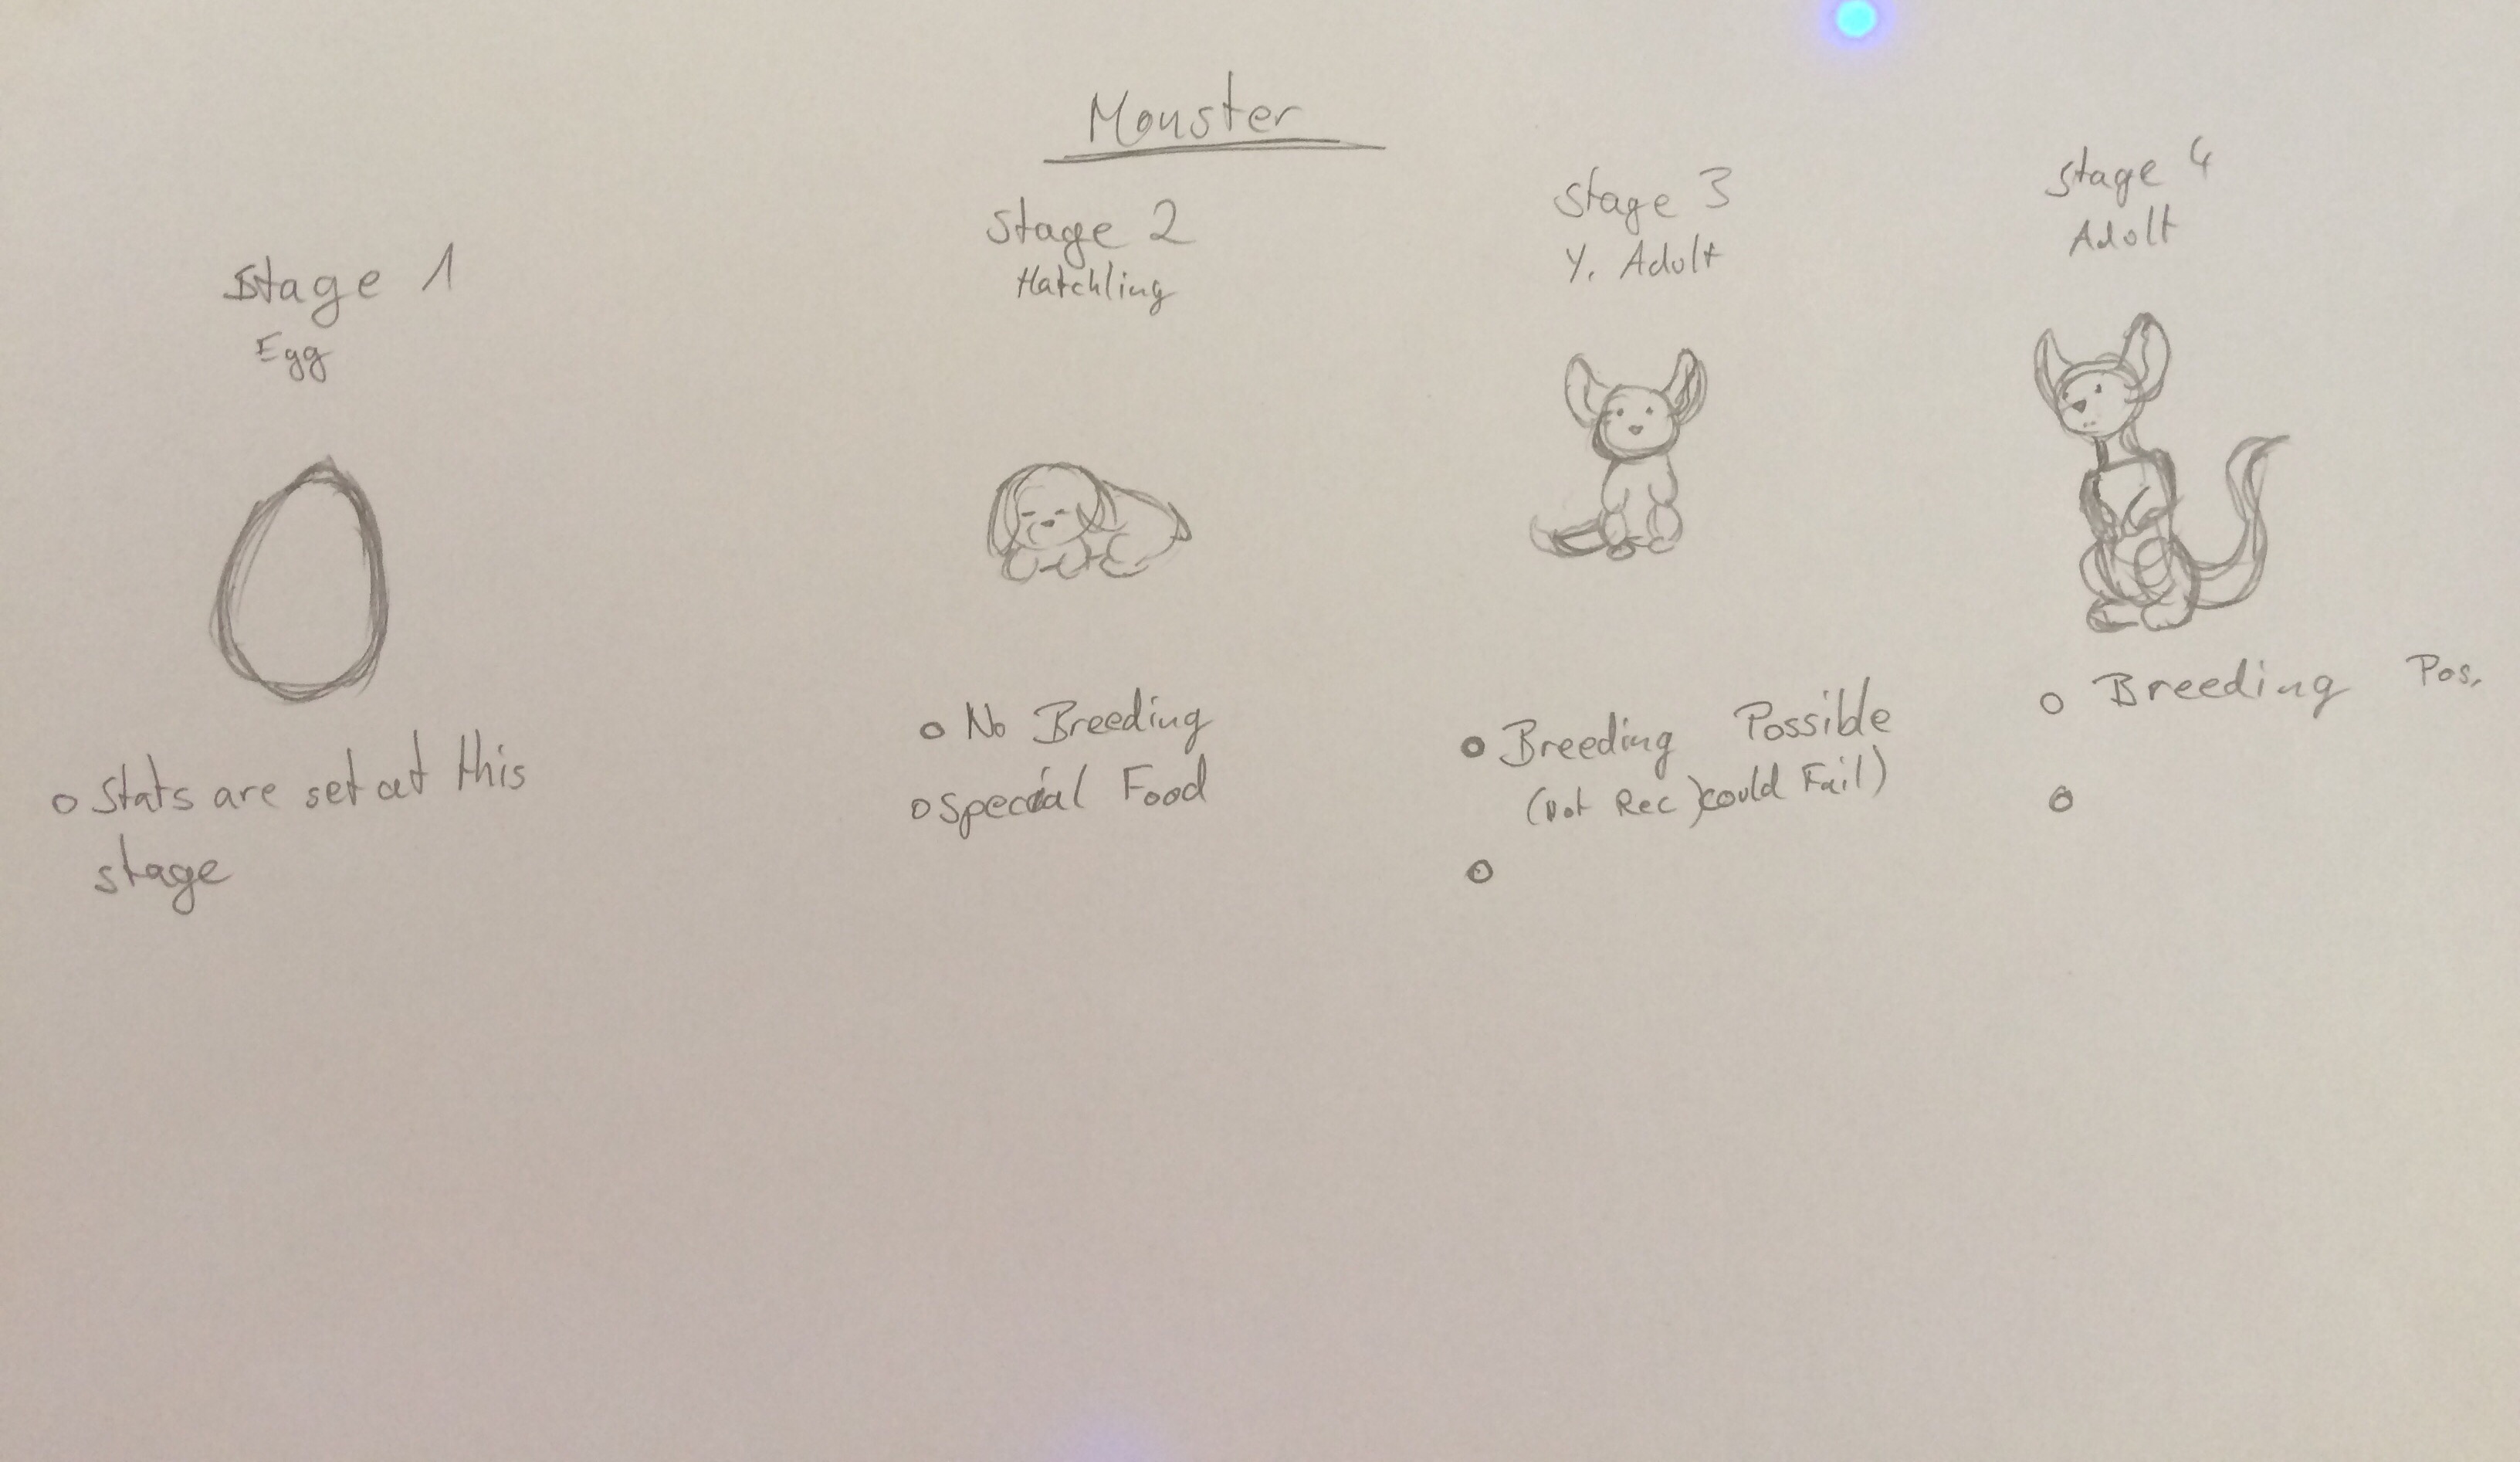 Monster
Stage 1
Egg
o Stats are set at this
stage
Stage 2
Hatchling
o No Breeding
o Special Food
Stage 3
Y. Adult
o Breeding Possible
(not Rec) could Fail)
o
Stage 4
Adult
o Breeding Pos.
o